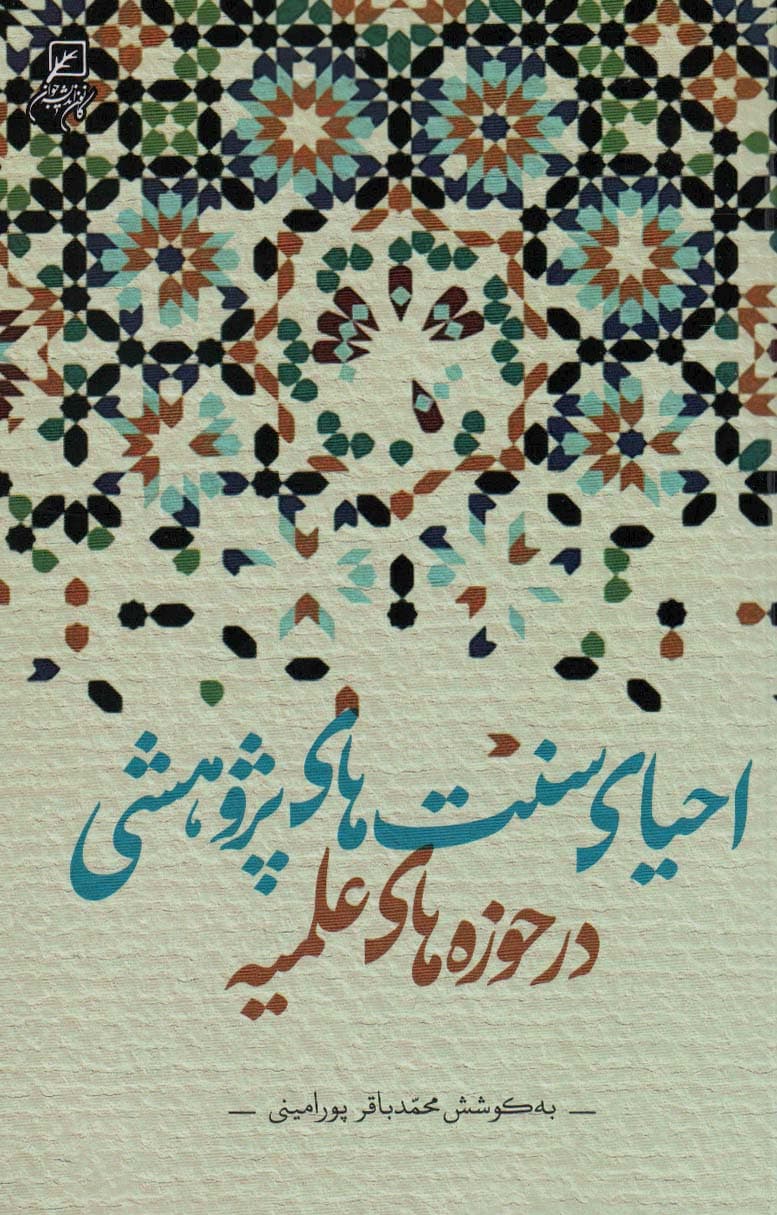 کانون اندیشه جوان
احیای سنت‌های پژوهشی
در حوزه‌های علمیه
به‌کوشش محمّدباقر پورامینی